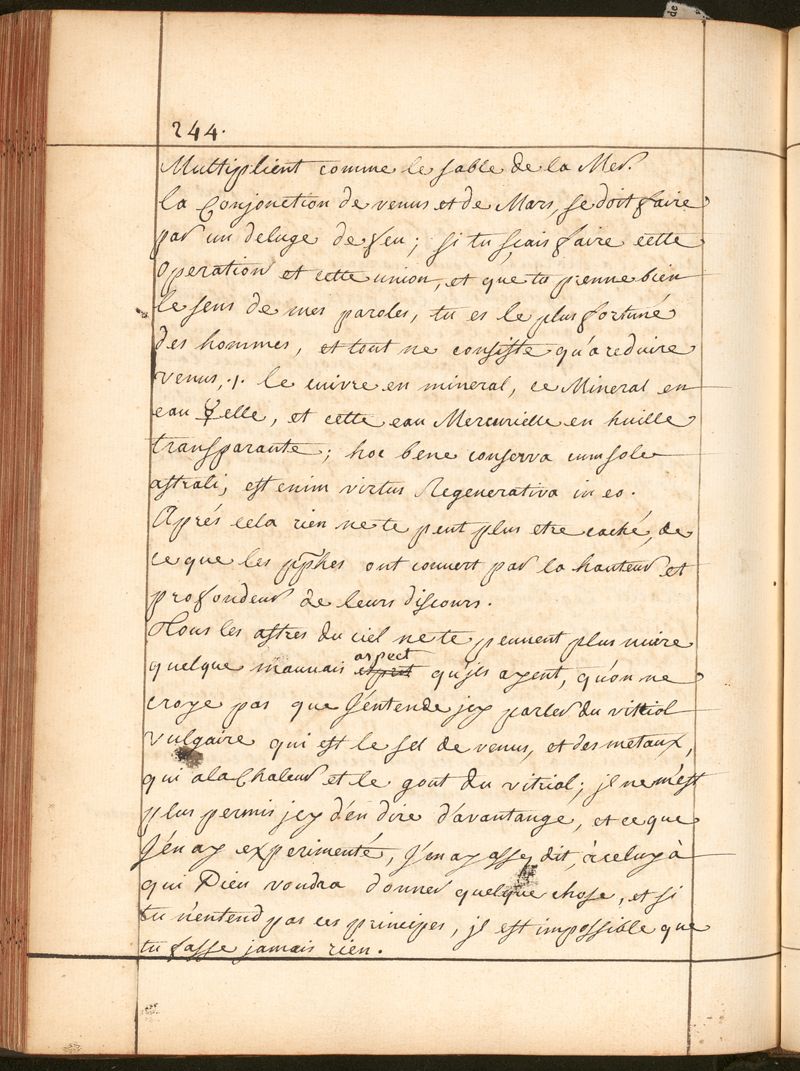 244.
Multiplient comme le sable de la Mer.
la Conjonction de venus et de Mars, se doit faire
par un deluge de feu; si tu sçais faire cette
operation et cette union, et que tu prenne bien
le sens de mes paroles, tu es le plus fortuné
des hommes, et tout ne consiste qu'a reduire
venus, .|. le cuivre en mineral, ce Mineral en
eau ☿elle, et cette eau Mercurielle en huille
transparante; hoc bene conserva cum sole
astrali, est enim virtus Regenerativa in eo.
Aprés cela rien ne te peut plus etre caché, de
ce que les pphes ont couvert par la hauteur et
profondeur de leurs discours.
Tous les astres du ciel ne te peuvent plus nuire
quelque mauvais aspect qu'jls ayent, qu'on ne
croye pas que j'entende jcy parler du vitriol
vulgaire qui est le sel de venus, et des metaux,
qui a la Chaleur et le gout du vitriol; jl ne m'est
plus permis jcy d'en dire d'avantange, et ce que
j'en ay experimenté, j'en ay assez dit, à celuy à
qui Dieu voudra donner quelque chose, et si
tu n'entend pas ces principes, jl est impossible que
tu fasse jamais rien.